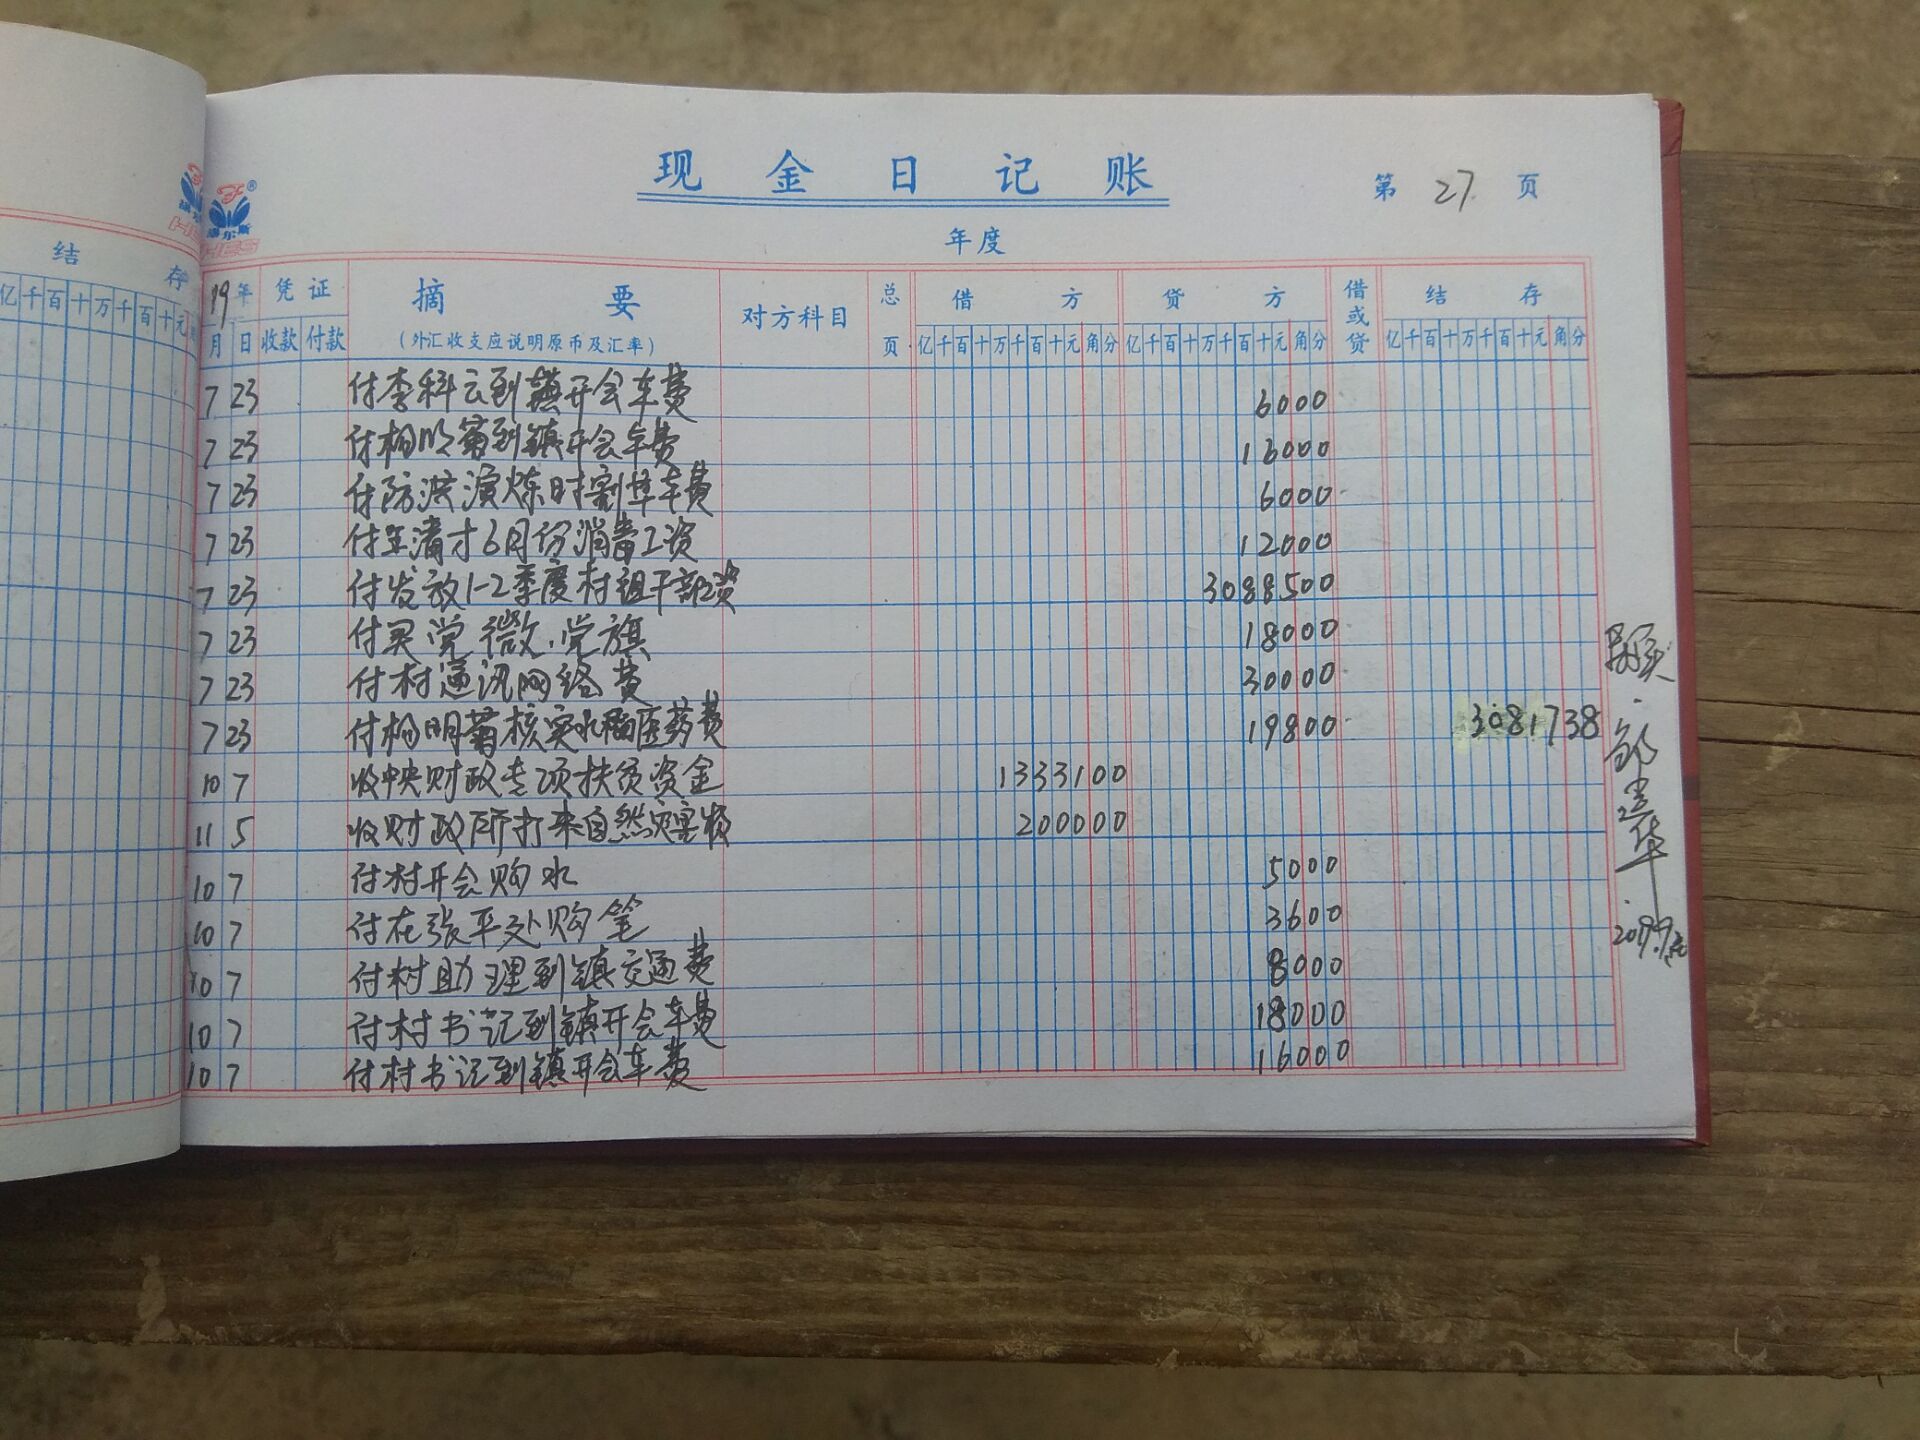 现金日记账
第 27 页
年度
结 存
亿千百十万千百十元
福尔斯
19年 凭证 摘要 对方科目 总页 借方 贷方 借或贷 结存
月 日 收款 付款 (外汇收支应说明原币及汇率) 亿千百十万千百十元角分 亿千百十万千百十元角分 亿千百十万千百十元角分
7 23 付李科云到镇开会车费 6000
7 23 付杨明菊到镇开会车费 16000
7 23 付防洪演炼时割草车费 6000
7 23 付 清才6月份消毒工资 12000
7 23 付发放1-2季度村组干部工资 3088500
7 23 付买党徽.党旗 18000
7 23 付村通讯网络费 30000
7 23 付杨明菊核实水 医药费 19800 3081738
10 7 收中央财政专项扶贫资金 1333100
11 5 收财政所打来自然灾害 200000
10 7 付村开会购水 5000
10 7 付在张平处购笔 3600
10 7 付村助理到镇交通费 8000
10 7 付村书记到镇开会车费 18000
10 7 付村书记到镇开会车费 16000
建华